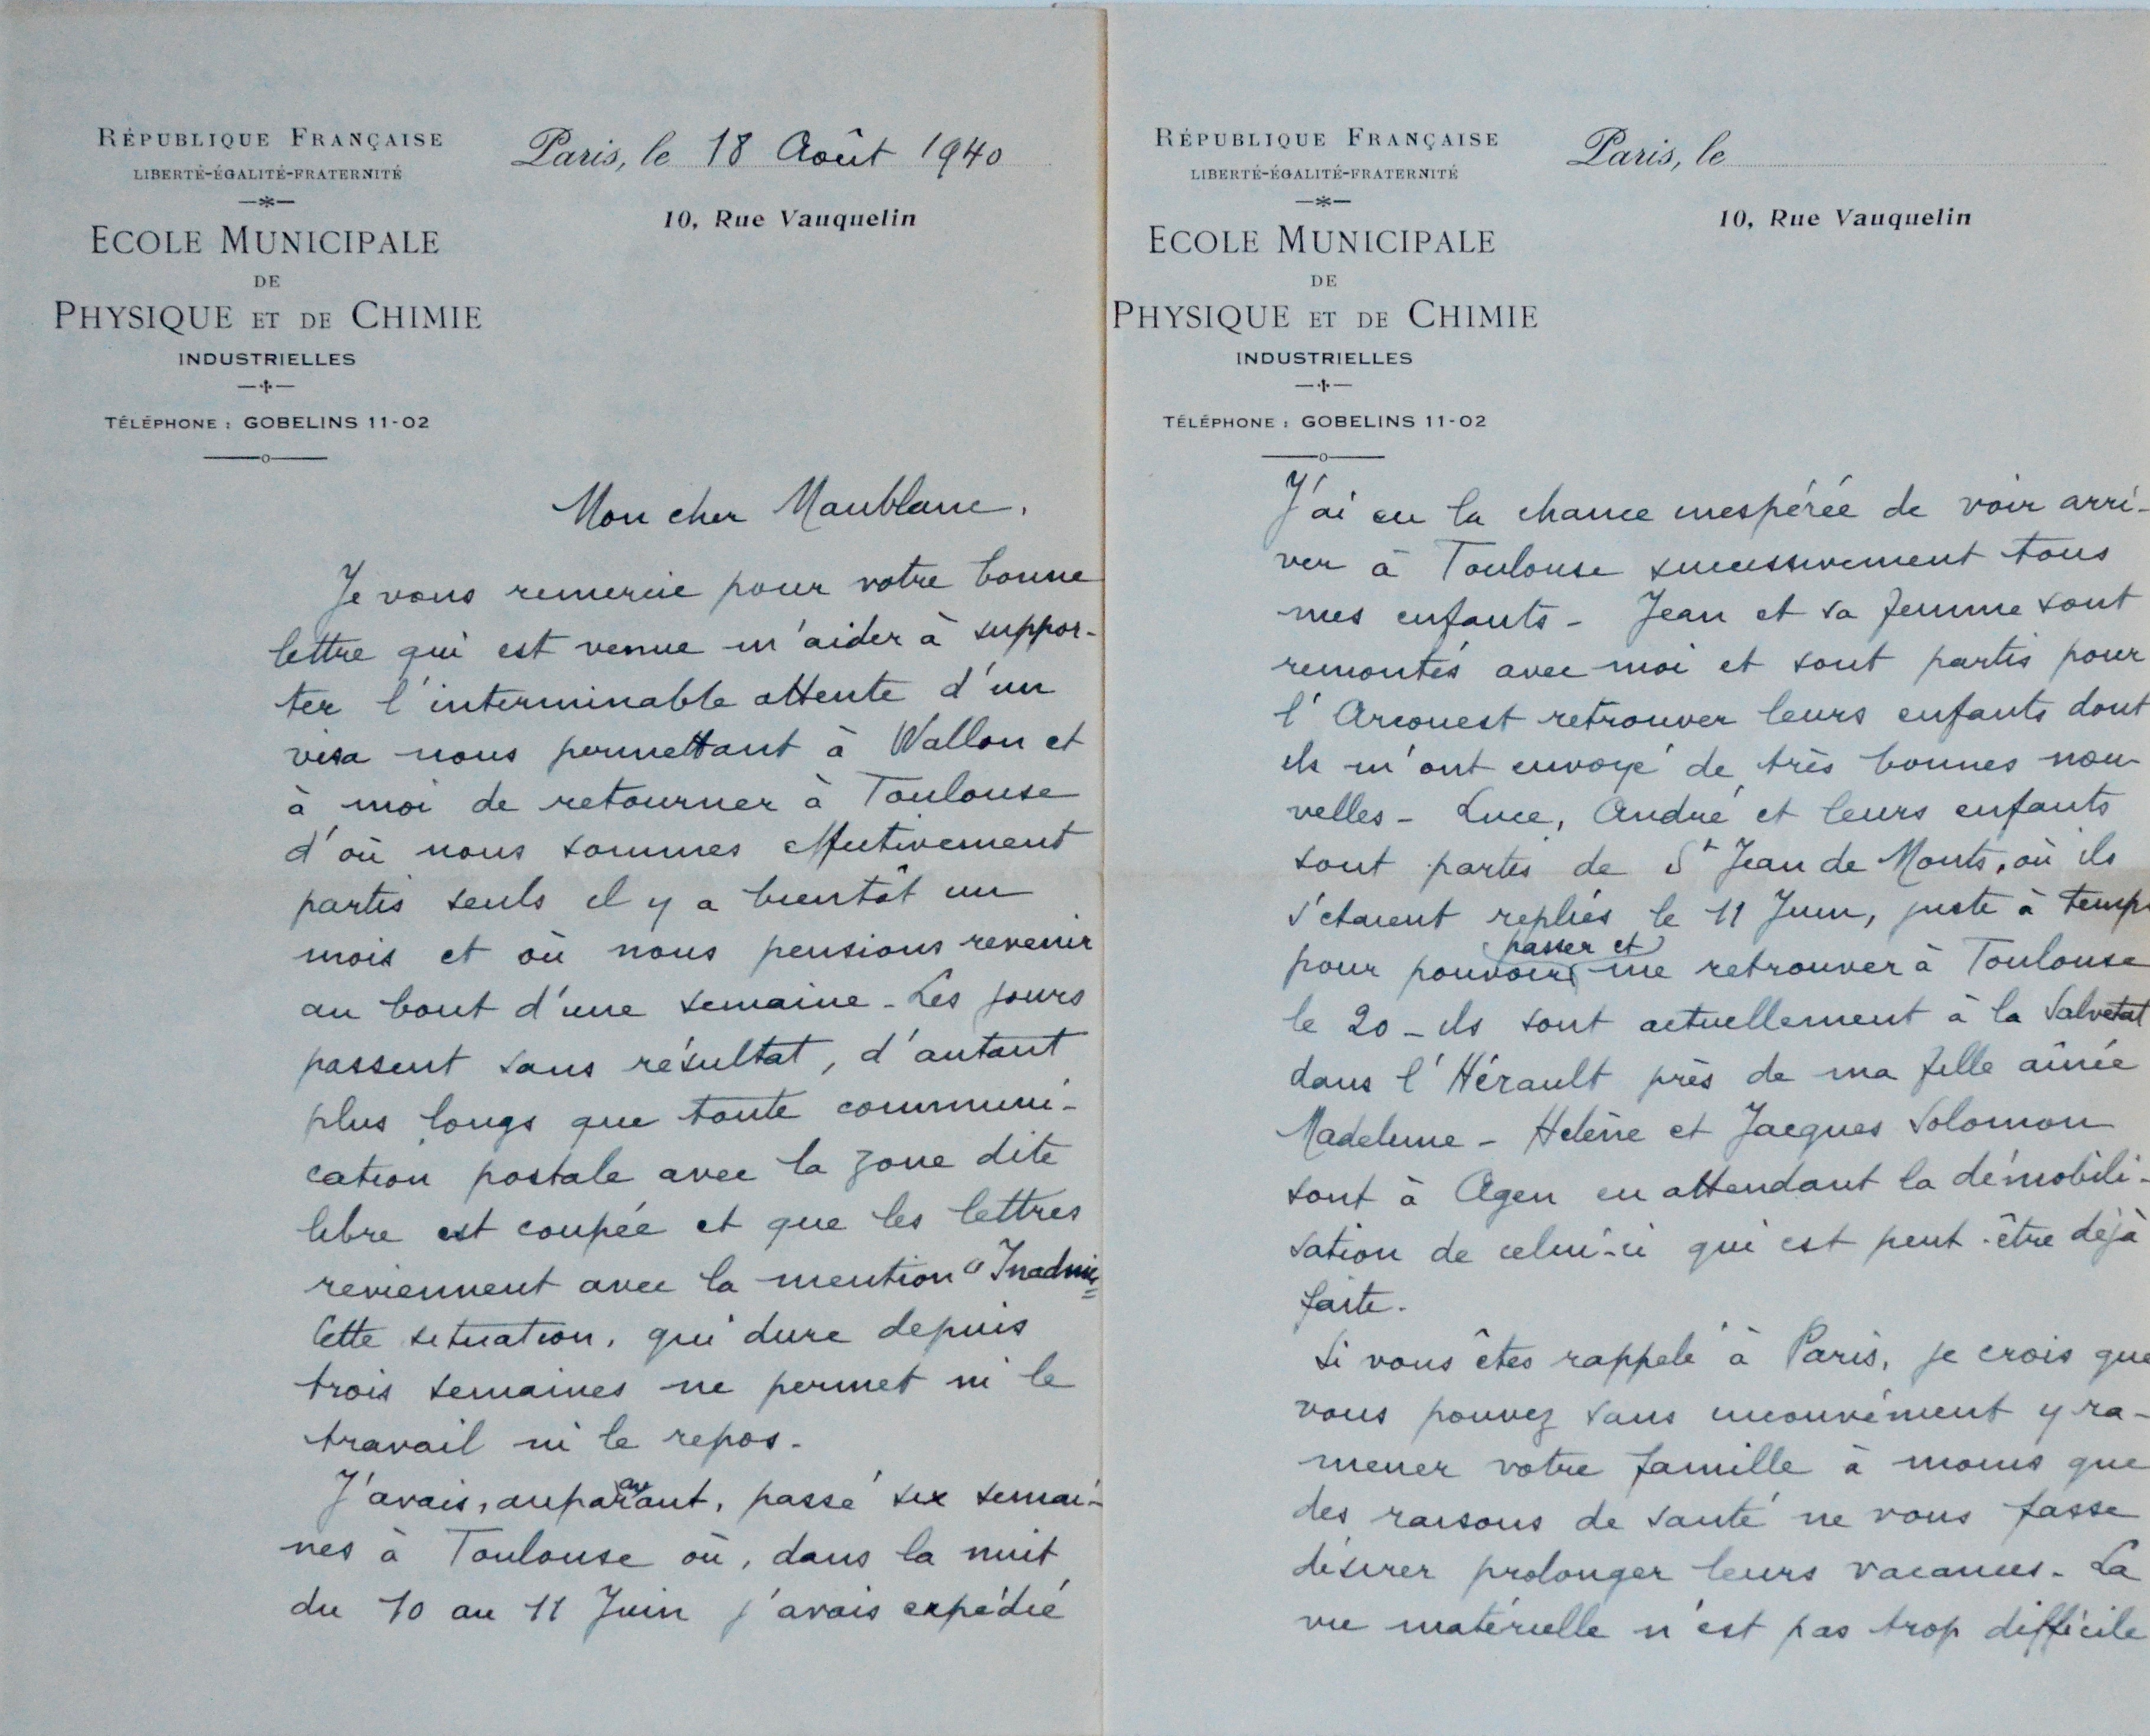 RÉPUBLIQUE FRANÇAISE
LIBERTÉ-ÉGALITÉ-FRATERNITÉ
ECOLE MUNICIPALE
DE
PHYSIQUE ET DE CHIMIE
INDUSTRIELLES
TÉLÉPHONE : GOBELINS 11-02
Paris, le 18 Août 1940
10, Rue Vauquelin
Mon cher Maublanc,
Je vous remercie pour votre bonne
lettre qui est venue m'aider à suppor-
ter l'interminable attente d'un
visa nous permettant à Wallon et
à moi de retourner à Toulouse
d'où nous sommes effectivement
partis seuls il y a bientôt un
mois et où nous pensions revenir
au bout d'une semaine - Les jours
passent sans résultat, d'autant
plus longs que toute communi-
cation postale avec la zone dite
libre est coupée et que les lettres
reviennent avec la mention "Inadmis
Cette situation, qui dure depuis
trois semaines ne permet ni le
travail ni le repos.
J'avais, auparavant, passé six semai-
nes à Toulouse où, dans la nuit
du 10 au 11 Juin j'avais expédié
RÉPUBLIQUE FRANÇAISE
LIBERTÉ-ÉGALITÉ-FRATERNITÉ
ECOLE MUNICIPALE
DE
PHYSIQUE ET DE CHIMIE
INDUSTRIELLES
TÉLÉPHONE : GOBELINS 11-02
Paris, le
10, Rue Vauquelin
J'ai eu la chance inespérée de voir arri-
ver à Toulouse successivement tous
mes enfants - Jean et sa femme sont
remontés avec moi et sont partis pour
l'Arcouest retrouver leurs enfants dont
ils m'ont envoyé de très bonnes nou-
velles - Luce, André et leurs enfants
sont partis de St Jean de Monts, où ils
s'étaient repliés le 11 Juin, juste à temps
pour pouvoir passer et me retrouver à Toulouse
le 20 - ils sont actuellement à la Salvetat
dans l'Hérault près de ma fille aînée
Madeleine - Hélène et Jacques Solomon
sont à Agen en attendant la démobili-
sation de celui-ci qui est peut-être déjà
faite.
Si vous êtes rappelé à Paris, je crois que
vous pouvez sans inconvénient y ra-
mener votre famille à moins que
des raisons de santé ne vous fasse
désirer prolonger leurs vacances - La
vie matérielle n'est pas trop difficile